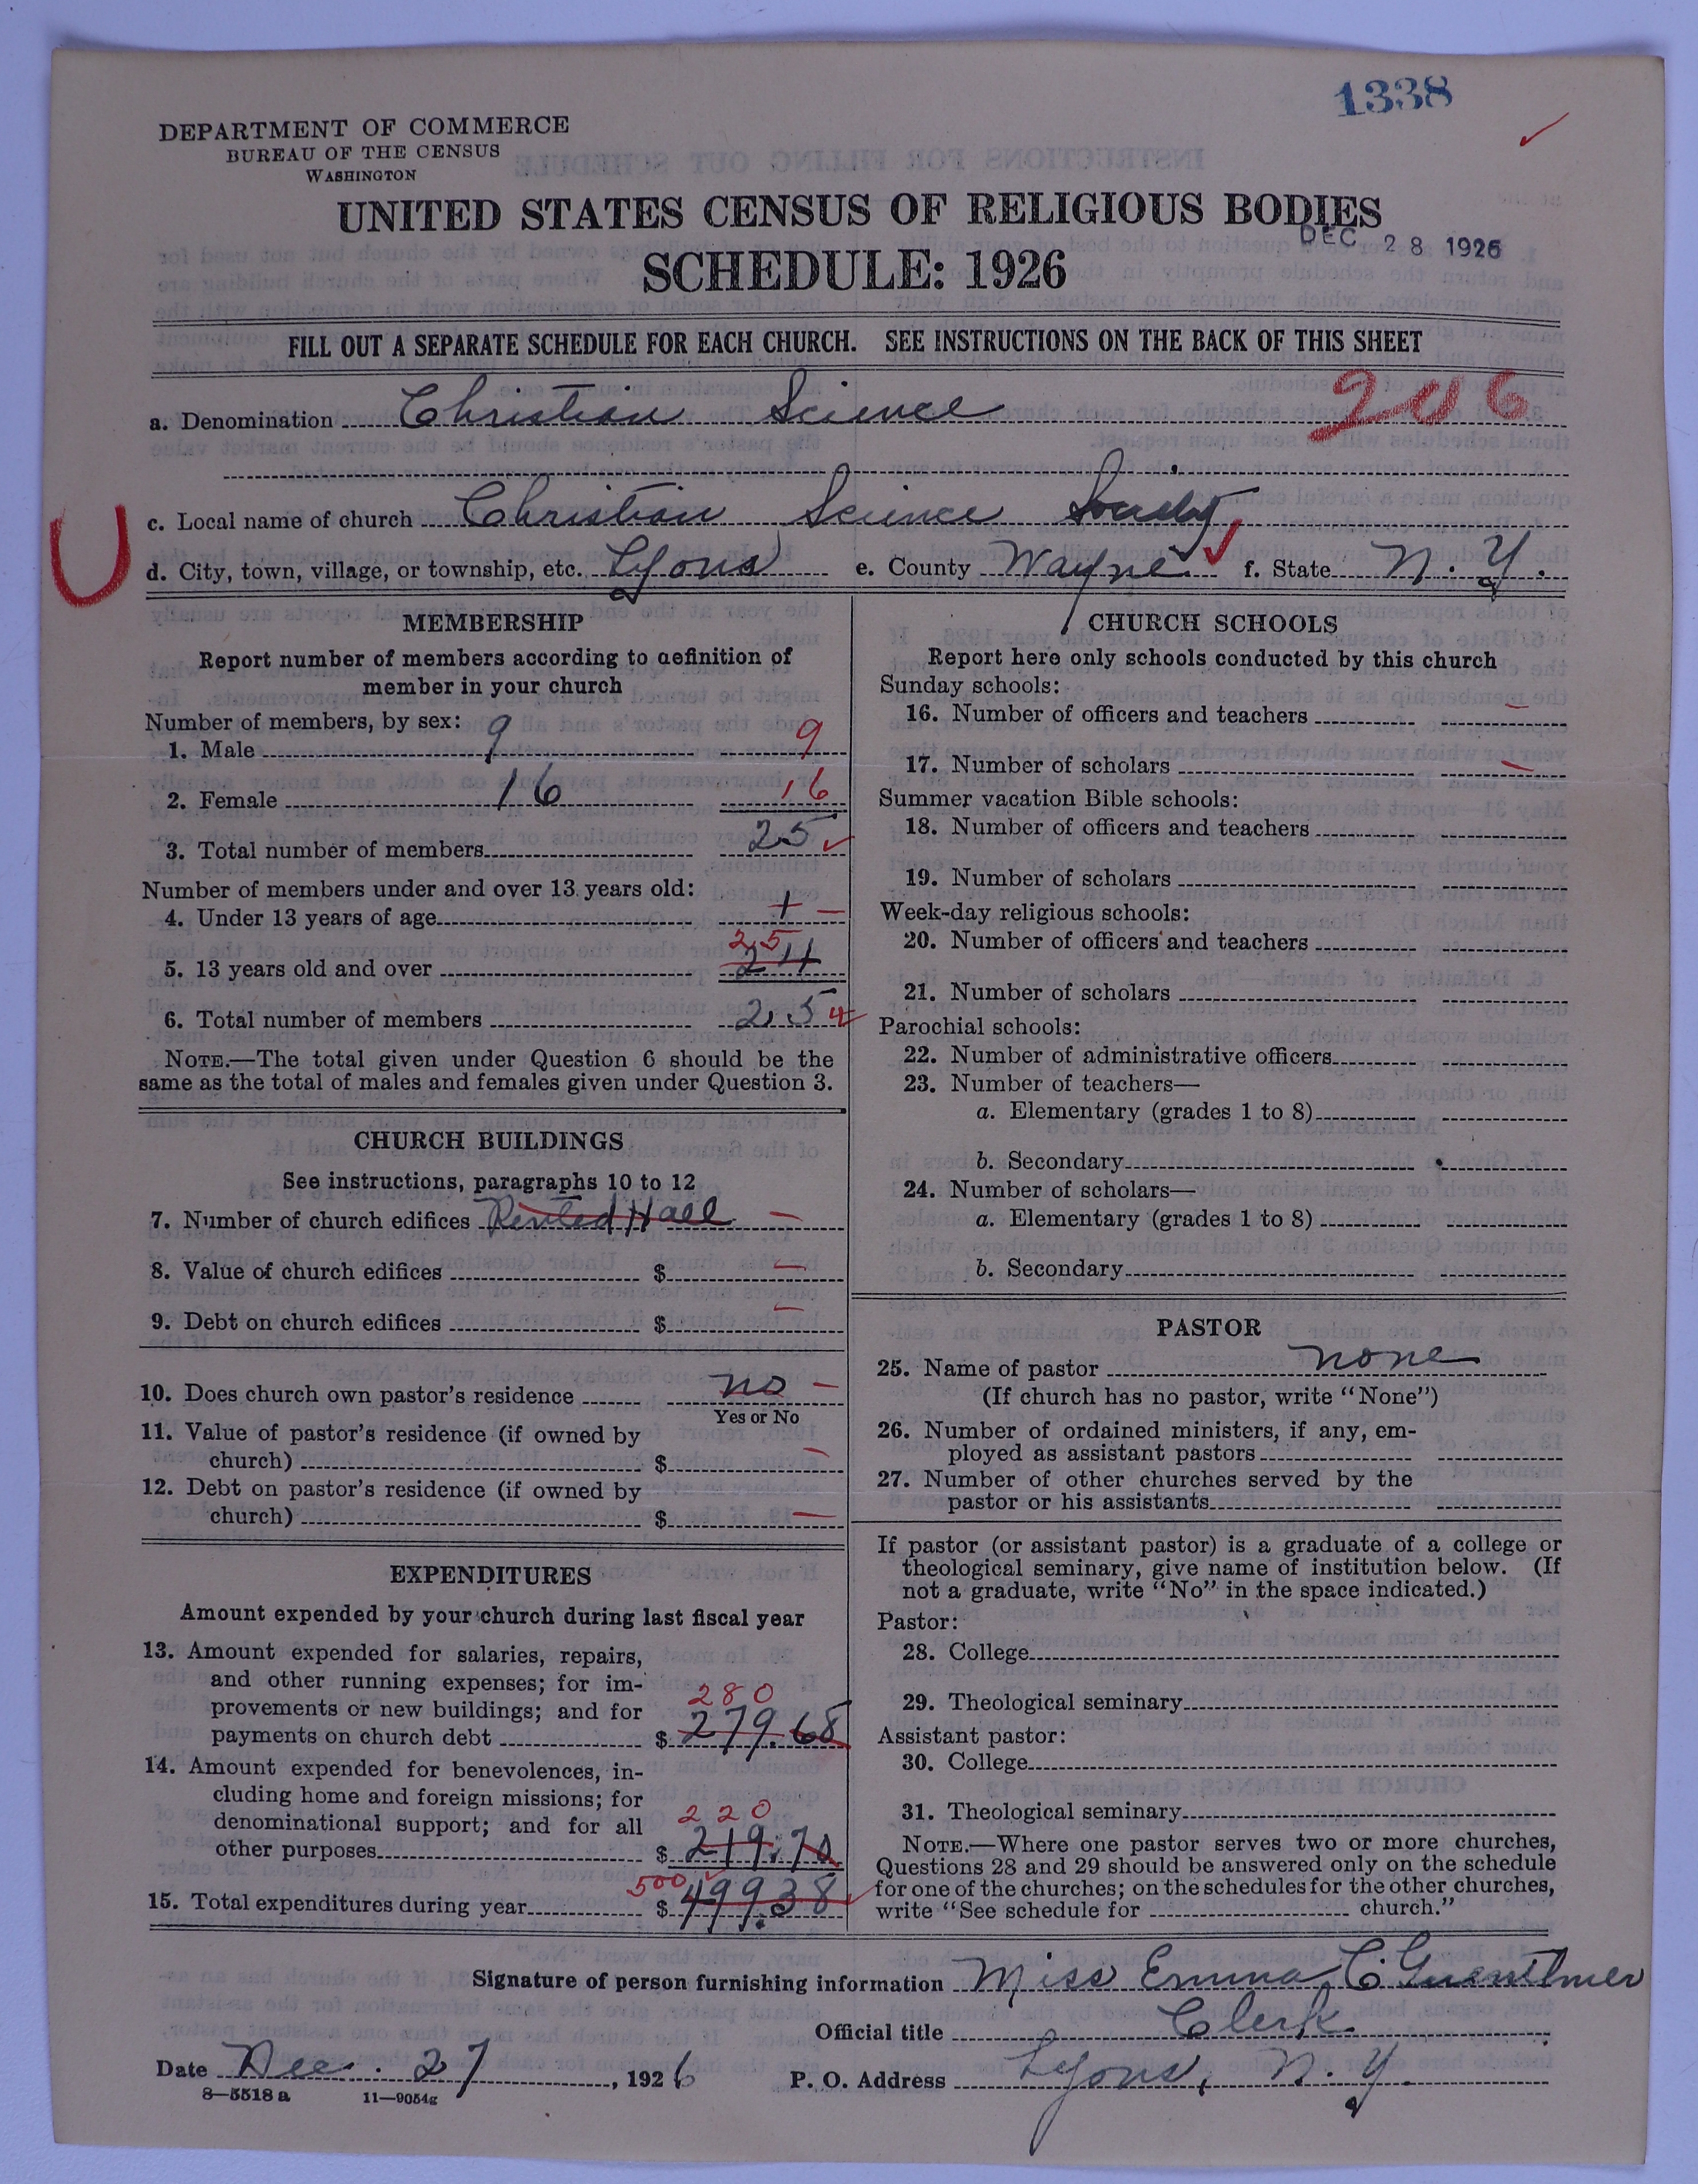 1338
DEPARTMENT OF COMMERCE
BUREAU OF THE CENSUS
WASHINGTON
UNITED STATES CENSUS OF RELIGIOUS BODIES
DEC 28 1926
SCHEDULE: 1926
FILL OUT A SEPARATE SCHEDULE FOR EACH CHURCH. SEE INSTRUCTIONS ON THE BACK OF THIS SHEET
206
a. Denomination Christian Science
c. Local name of church Christian Science Society
d. City, town, village, or township, etc. Lyons e. County Wayne f. State N. Y.
MEMBERSHIP
Report number of members according to definition of
member in your church
Number of members, by sex:
1. Male 9 9
2. Female 16 16
3. Total number of members 25
Number of members under and over 13 years old:
4. Under 13 years of age 1 –
25
5. 13 years old and over 24
6. Total number of members 25
NOTE.—The total given under Question 6 should be the
same as the total of males and females given under Question 3.
CHURCH BUILDINGS
See instructions, paragraphs 10 to 12
7. Number of church edifices Rented Hall –
8. Value of church edifices $ –
9. Debt on church edifices $ –
10. Does church own pastor's residence no –
Yes or No
11. Value of pastor's residence (if owned by
church) $ –
12. Debt on pastor's residence (if owned by
church) $ –
EXPENDITURES
Amount expended by your church during last fiscal year
13. Amount expended for salaries, repairs,
and other running expenses; for im-
provements or new buildings; and for 280
payments on church debt $ 279.68
14. Amount expended for benevolences, in-
cluding home and foreign missions; for
denominational support; and for all 220
other purposes $ 219.70
500
15. Total expenditures during year $ 499.38
CHURCH SCHOOLS
Report here only schools conducted by this church
Sunday schools:
16. Number of officers and teachers –
17. Number of scholars –
Summer vacation Bible schools:
18. Number of officers and teachers
19. Number of scholars
Week-day religious schools:
20. Number of officers and teachers
21. Number of scholars
Parochial schools:
22. Number of administrative officers
23. Number of teachers—
a. Elementary (grades 1 to 8)
b. Secondary
24. Number of scholars—
a. Elementary (grades 1 to 8)
b. Secondary
PASTOR
25. Name of pastor none
(If church has no pastor, write "None")
26. Number of ordained ministers, if any, em-
ployed as assistant pastors
27. Number of other churches served by the
pastor or his assistants
If pastor (or assistant pastor) is a graduate of a college or
theological seminary, give name of institution below. (If
not a graduate, write "No" in the space indicated.)
Pastor:
28. College
29. Theological seminary
Assistant pastor:
30. College
31. Theological seminary
NOTE.—Where one pastor serves two or more churches,
Questions 28 and 29 should be answered only on the schedule
for one of the churches; on the schedules for the other churches,
write "See schedule for church."
Signature of person furnishing information Miss Emma C
Official title Clerk
Date Dec. 27, 1926 P. O. Address Lyons, N. Y.
8—5518 a 11—9054g